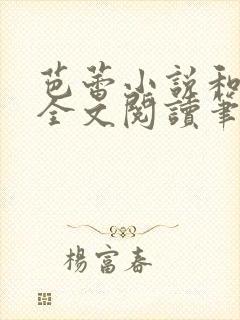 芭蕾小説和
全文閱讀筆
楊富春